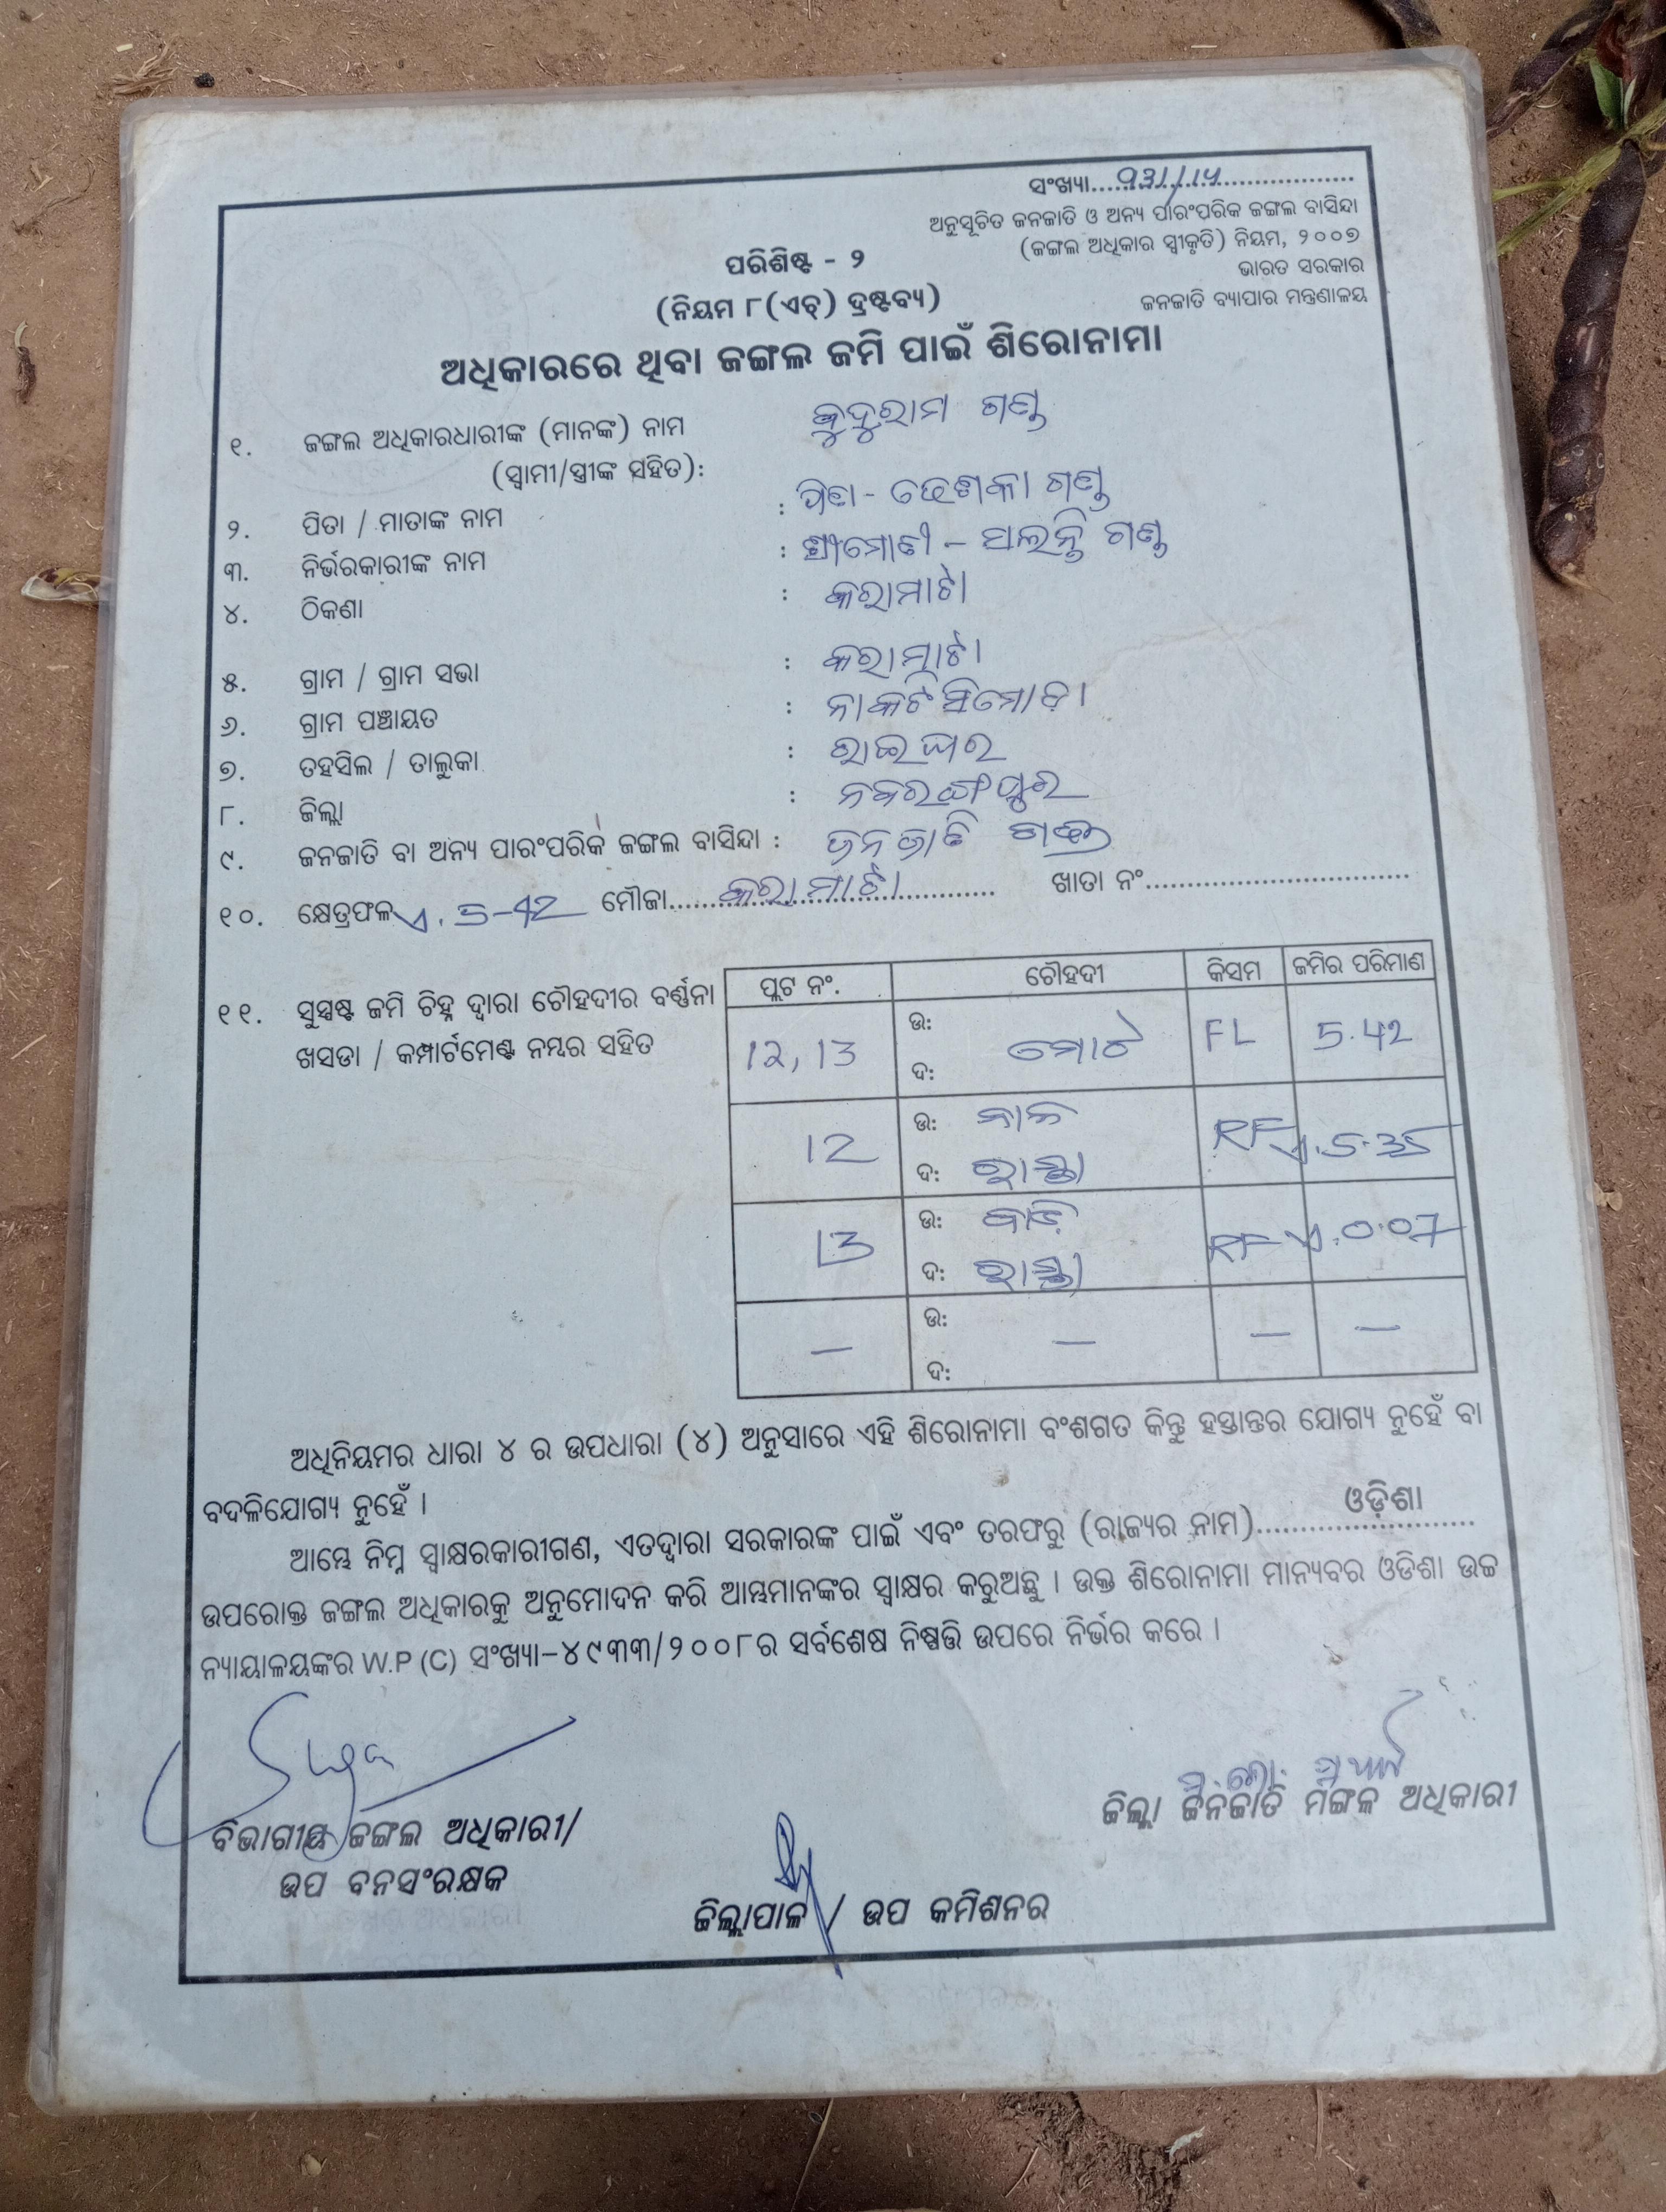 ସଂଖ୍ୟା
ଅନୁସୂଚିତ ଜନଜାତି ଓ ଅନ୍ୟ ପାରଂପରିକ ଜଙ୍ଗଲ ବାସିନ୍ଦା
(ଜଙ୍ଗଲ ଅଧିକାର ସ୍ୱୀକୃତି) ନିୟମ, ୨୦୦୭
ଭାରତ ସରକାର
ଜନଜାତି ବ୍ୟାପାର ମନ୍ତ୍ରଣାଳୟ
ପରିଶିଷ୍ଟ - ୨
(ନିୟମ ୮(ଏଚ୍) ଦ୍ରଷ୍ଟବ୍ୟ)
ଅଧିକାରରେ ଥିବା ଜଙ୍ଗଲ ଜମି ପାଇଁ ଶିରୋନାମା
୧. ଜଙ୍ଗଲ ଅଧିକାରଧାରୀଙ୍କ (ମାନଙ୍କ) ନାମ କୁଦୁରାମ ଗଣ୍ଡ
(ସ୍ୱାମୀ/ସ୍ତ୍ରୀଙ୍କ ସହିତ):
୨. ପିତା / ମାତାଙ୍କ ନାମ : ପିତା - ଗଣ୍ଡ
୩. ନିର୍ଭରକାରୀଙ୍କ ନାମ : ଶ୍ରୀମୋତୀ - ଗଣ୍ଡ
୪. ଠିକଣା : କରାମାଟୋ
୫. ଗ୍ରାମ / ଗ୍ରାମ ସଭା : କରାମାଟୋ
୬. ଗ୍ରାମ ପଞ୍ଚାୟତ : ନାକଟିସିମୋଡ଼ା
୭. ତହସିଲ / ତାଲୁକା : ରାଇଘର
୮. ଜିଲ୍ଲା : ନବରଙ୍ଗପୁର
୯. ଜନଜାତି ବା ଅନ୍ୟ ପାରଂପରିକ ଜଙ୍ଗଲ ବାସିନ୍ଦା : ଜନଜାତି ଗଣ୍ଡ
୧୦. କ୍ଷେତ୍ରଫଳ ଏ. 5-42 ମୌଜା କରାମାଟୋ ଖାତା ନଂ
୧୧. ସୁସ୍ପଷ୍ଟ ଜମି ଚିହ୍ନ ଦ୍ୱାରା ଚୌହଦୀର ବର୍ଣ୍ଣନା
ଖସଡା / କମ୍ପାର୍ଟମେଣ୍ଟ ନମ୍ବର ସହିତ
ପ୍ଲଟ ନଂ. ଚୌହଦୀ କିସମ ଜମିର ପରିମାଣ
12, 13 ଉ: ଦ: ମୋଟେ FL 5.42
12 ଉ: RF ଏ. 5.35
ଦ: ରାସ୍ତା
13 ଉ: ବାଡ଼ି RF ଏ. 0.07
ଦ: ରାସ୍ତା
— ଉ: ଦ: — — —
ଅଧିନିୟମର ଧାରା ୪ ର ଉପଧାରା (୪) ଅନୁସାରେ ଏହି ଶିରୋନାମା ବଂଶଗତ କିନ୍ତୁ ହସ୍ତାନ୍ତର ଯୋଗ୍ୟ ନୁହେଁ ବା
ବଦଳିଯୋଗ୍ୟ ନୁହେଁ ।
ଆମ୍ଭେ ନିମ୍ନ ସ୍ୱାକ୍ଷରକାରୀଗଣ, ଏତଦ୍ୱାରା ସରକାରଙ୍କ ପାଇଁ ଏବଂ ତରଫରୁ (ରାଜ୍ୟର ନାମ) ଓଡ଼ିଶା
ଉପରୋକ୍ତ ଜଙ୍ଗଲ ଅଧିକାରକୁ ଅନୁମୋଦନ କରି ଆମ୍ଭମାନଙ୍କର ସ୍ୱାକ୍ଷର କରୁଅଛୁ । ଉକ୍ତ ଶିରୋନାମା ମାନ୍ୟବର ଓଡିଶା ଉଚ୍ଚ
ନ୍ୟାୟାଳୟଙ୍କର W.P (C) ସଂଖ୍ୟା–୪୯୩୩/୨୦୦୮ର ସର୍ବଶେଷ ନିଷ୍ପତ୍ତି ଉପରେ ନିର୍ଭର କରେ ।
ବିଭାଗୀୟ ଜଙ୍ଗଲ ଅଧିକାରୀ/
ଉପ ବନସଂରକ୍ଷକ
ଜିଲ୍ଲାପାଳ / ଉପ କମିଶନର
ଜିଲ୍ଲା ଜନଜାତି ମଙ୍ଗଳ ଅଧିକାରୀ